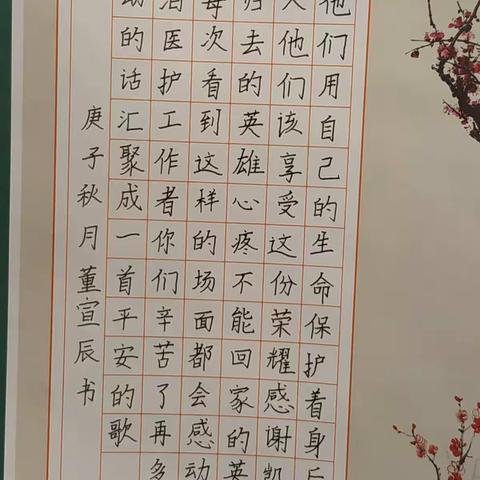 他们用自己的生命保护着身后
人他们该享受这份荣耀感谢凯
归去的英雄心疼不能回家的英
每次看到这样的场面都会感动
泪医护工作者你们辛苦了再多
动的话汇聚成一首平安的歌
庚子秋月董宣辰书